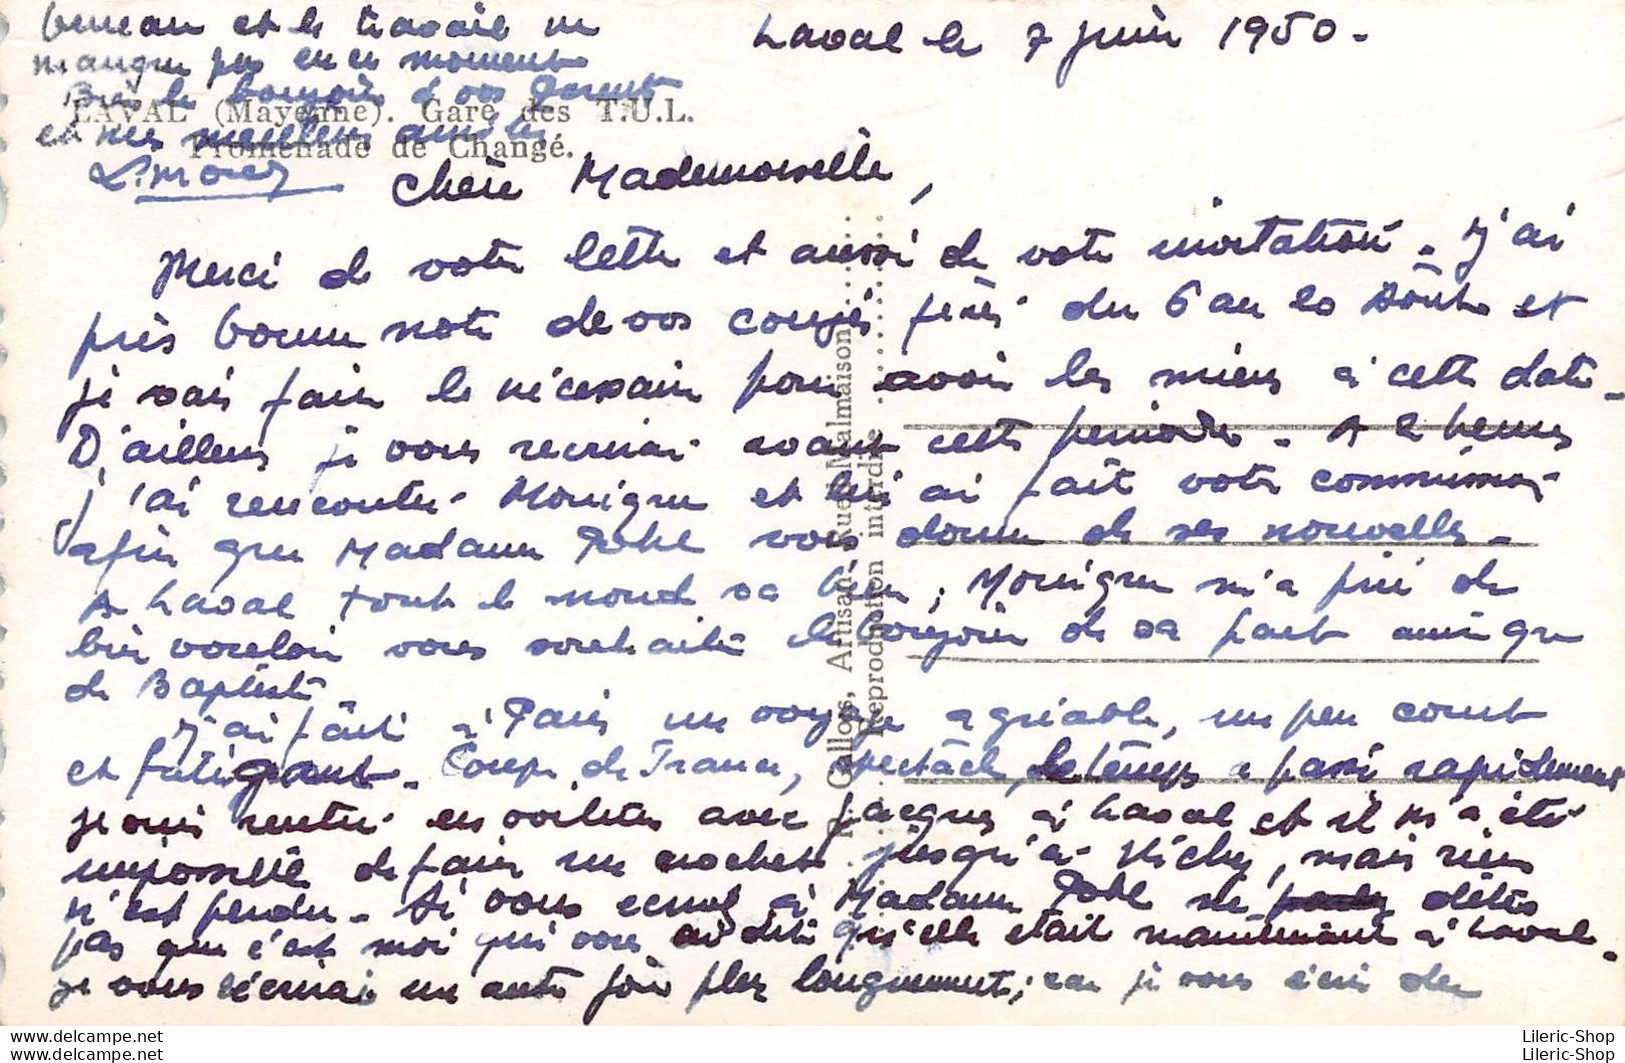 Laval le 7 juin 1950.
Chère Mademoiselle,
Merci de votre lettre et aussi de votre invitation. J'ai
pris bonne note de vos congés fixés du 6 au 20 Août et
je vais faire le nécessaire pour avoir les miens à cette date.
D'ailleurs je vous récrirai avant cette période. A 2 heures
j'ai rencontré Monique et lui ai fait votre commission
afin que Madame vous donne de ses nouvelles.
A Laval tout le monde va bien ; Monique m'a prié de
bien vouloir vous souhaiter le bonjour de sa part ainsi que
de Baptiste.
J'ai fait à Paris un voyage agréable, un peu court
et fatigant. Coupe de France, spectacle, le temps a passé rapidement
je suis rentré en voiture avec Jacques à Laval et il m'a été
impossible de faire un crochet jusqu'à Vichy, mais rien
n'est perdu. Si vous écrivez à Madame ne dites
pas que c'est moi qui vous ai dit qu'elle était maintenant à Laval.
je vous écrirai une autre fois plus longuement ; car je vous écris du
bureau et le travail ne
manque pas en ce moment
Bien le bonjour à vos Parents
et mes meilleures amitiés
LAVAL (Mayenne). Gare des T.U.L.
Promenade de Changé.
Gallois, Artisan, Rueil-Malmaison
Reproduction interdite
Lileric-Shop
Lileric-Shop
Lileric-Shop
Lileric-Shop